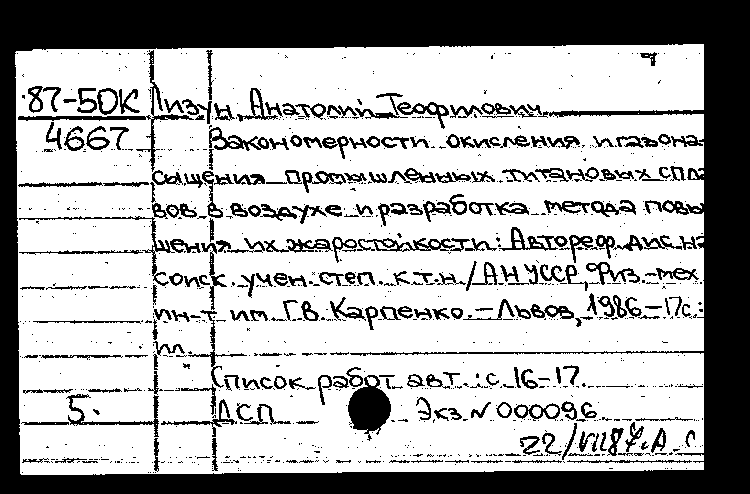 87-5DK Лизун, Анатолий Теофилович
4667 Закономерности окисления и газона-
сыщения промышленных титановых спла
вов в воздухе и разработка метода повы
шения их жаростойкости: Автореф. дис. на
соиск. учен. степ. к.т.н./АН УССР, Физ.-мех
ин-т им. Г.В. Карпенко.-Львов, 1986-17с.:
ил.
Список работ авт.: с. 16-17.
5. ДСП Экз N 000096
22/VII87.